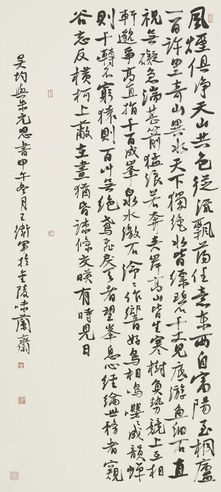 風煙俱淨天山共色從流飄蕩任意東西自富陽至桐廬
一百許里奇山異水天下獨絕水皆縹碧千丈見底游魚細石直
視無礙急湍甚箭猛浪若奔夾岸高山皆生寒樹負勢競上互相
軒邈爭高直指千百成峯泉水激石泠泠作響好鳥相鳴嚶嚶成韻蟬
則千轉不窮猿則百叫無絕鳶飛戾天者望峯息心經綸世務者窺
谷忘反橫柯上蔽在晝猶昏疎條交映有時見日
吴均與朱元思書甲午冬月王衛軍於金陵蘭齋